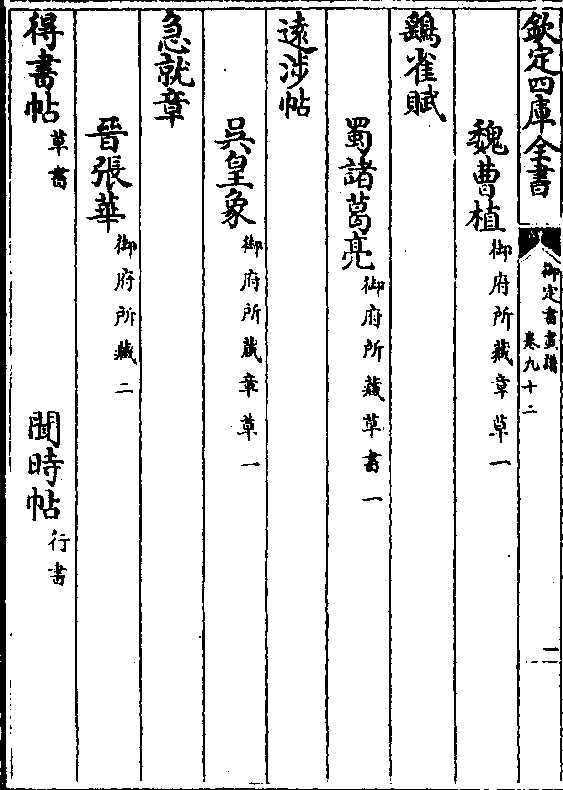 欽定四庫全書
御定書畫譜
卷九十二
二
魏曹植御府所藏章草一
鷂雀賦
蜀諸葛亮御府所藏草書一
遠涉帖
吳皇象御府所藏章草一
急就章
晉張華御府所藏二
得書帖草書 聞時帖行書